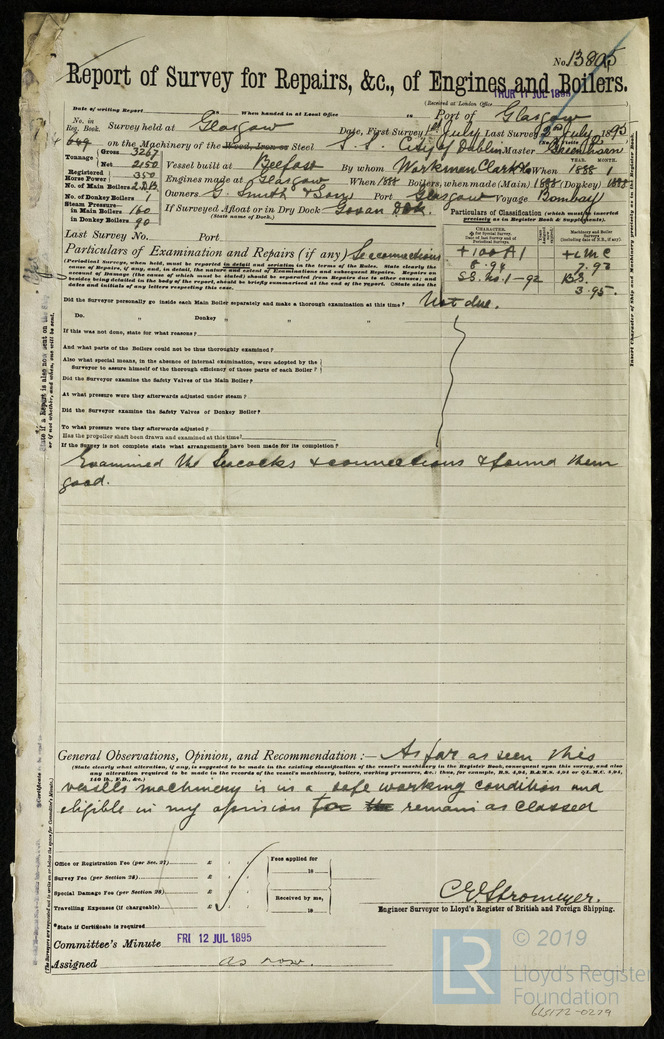 No. 13805
Report of Survey for Repairs, &c., of Engines and Boilers.
THUR 11 JUL 1895
(Received at London Office
Date of writing Report
When handed in at Local Office
18
Port of Glasgow
No. in Reg. Book.
Survey held at Glasgow
Date, First Survey 1st July Last Survey 2nd July 1895
on the Machinery of the Wood, Iron or Steel S. S. City of Dublin Master Greenhorn
Tonnage Gross 3267
Net 2150
Vessel built at Belfast By whom Workman Clark & Co When 1888 1
YEAR. MONTH.
Registered Horse Power 350
Engines made at Glasgow When 1888 Boilers, when made (Main) 1888 (Donkey) 1888
No. of Main Boilers 2 D.B.
No. of Donkey Boilers 1
Owners G. Smith & Sons Port Glasgow Voyage Bombay
Steam Pressure—
in Main Boilers 160
in Donkey Boilers 90
If Surveyed Afloat or in Dry Dock Govan Dk.
(State name of Dock.)
Particulars of Classification (which must be inserted precisely as in Register Book & Supplements).
Last Survey No. Port
CHARACTER.
Machinery and Boiler Surveys (including date of N.B., if any).
+100A1
8.94
S.S. No. 1-92
+LMC
7.93
B.S.
3.95.
Particulars of Examination and Repairs (if any) Sea connections
(Periodical Surveys, when held, must be reported in detail and seriatim in the terms of the Rules. State clearly the
cause of Repairs, if any, and, in detail, the nature and extent of Examinations and subsequent Repairs. Repairs on
account of Damage (the cause of which must be stated) should be separated from Repairs due to other causes; and
besides being detailed in the body of the report, should be briefly summarised at the end of the report. State also the
dates and initials of any letters respecting this case.
Did the Surveyor personally go inside each Main Boiler separately and make a thorough examination at this time? Not due.
Do. " Donkey " " "
If this was not done, state for what reasons?
And what parts of the Boilers could not be thus thoroughly examined?
Also what special means, in the absence of internal examination, were adopted by the
Surveyor to assure himself of the thorough efficiency of those parts of each Boiler?
Did the Surveyor examine the Safety Valves of the Main Boiler?
At what pressure were they afterwards adjusted under steam?
Did the Surveyor examine the Safety Valves of Donkey Boiler?
To what pressure were they afterwards adjusted?
Has the propeller shaft been drawn and examined at this time?
If the Survey is not complete state what arrangements have been made for its completion?
Examined the Seacocks & connections & found them
good.
General Observations, Opinion, and Recommendation :— As far as seen this
(State clearly what alteration, if any, is suggested to be made in the existing classification of the vessel's machinery in the Register Book, consequent upon this survey, and also
any alteration required to be made in the records of the vessel's machinery, boilers, working pressures, &c.; thus, for example, B.S. 4,94, B.&M.S. 4,94 or +L.M.C. 4,94,
140 lb., F.D., &c.)
vessels machinery is in a safe working condition and
eligible in my opinion for the remain as classed
Office or Registration Fee (per Sec. 27) £
Survey Fee (per Section 28) £
Special Damage Fee (per Section 28) £
Travelling Expenses (if chargeable) £
Fees applied for
18
Received by me,
18
C. E. Stromeyer.
Engineer Surveyor to Lloyd's Register of British and Foreign Shipping.
*State if Certificate is required
Committee's Minute FRI 12 JUL 1895
Assigned as now.
Insert Character of Ship and Machinery precisely as in the Register Book.
LR
© 2019
Lloyd's Register
Foundation